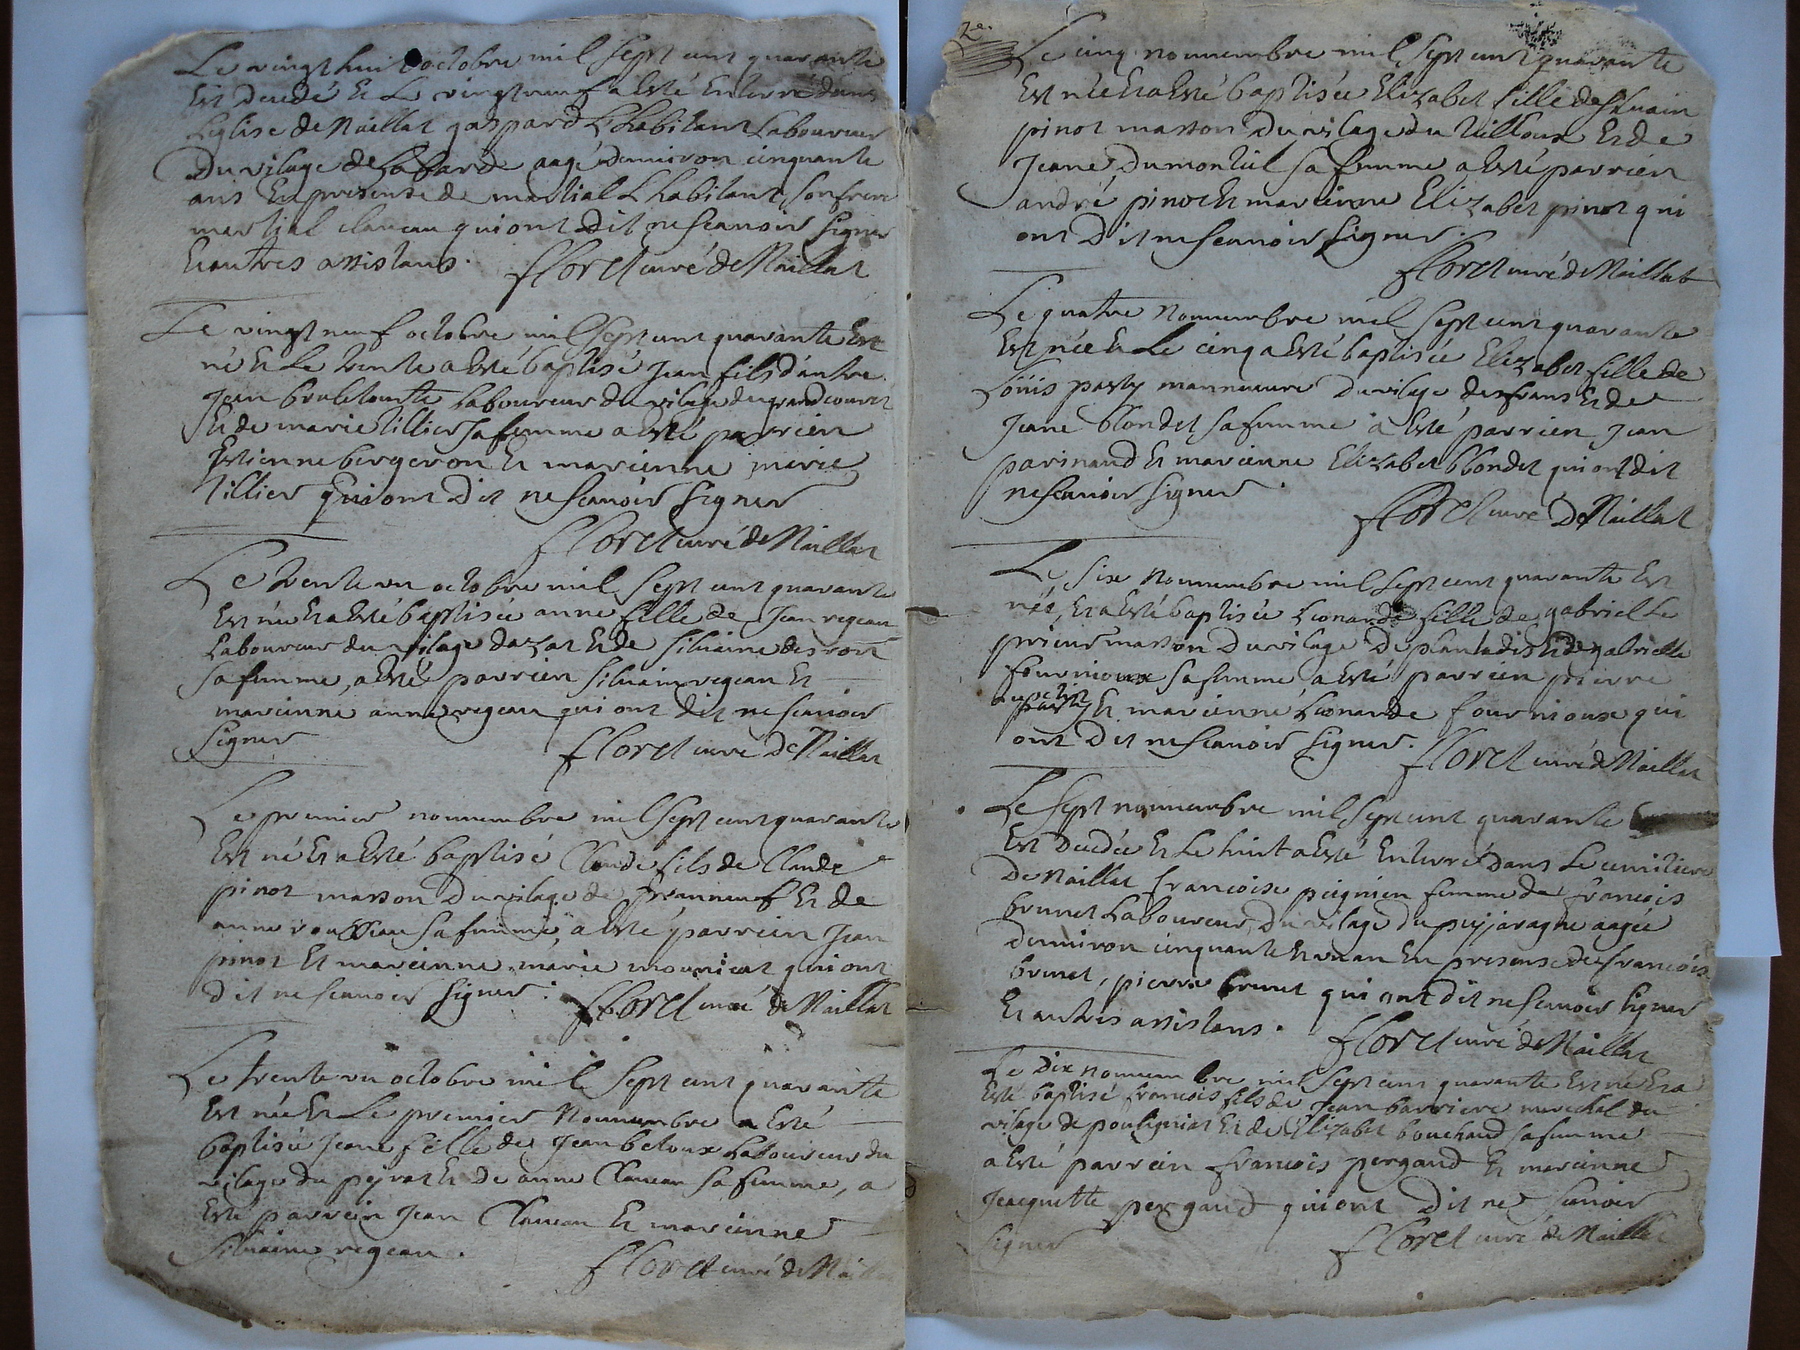 Le vingt huit octobre mil sept cent quarante
Est decedé Et Le vingt neuf a Esté Enterré dans
L'eglise de Naillat gaspard Lhabitant Laboureur
Du vilage de Labbard aagé denviron cinquante
ans En presence de martial Lhabitant, son frere
martial claveau qui ont dit ne scavoir signer
Et autres assistans. floret curé de Naillat
Le vingt neuf octobre mil sept cent quarante Est
né Et Le trente a Esté baptisé Jean fils d'autre
Jean laboureur du vilage du grand
Et de marie tillier sa femme a Esté parrien
Estienne bergeron Et marienne marie
tillier qui ont dit ne scavoir signer
floret curé de Naillat
Le trente un octobre mil sept cent quarante
Est née Et a Esté baptisée anne fille de Jean regeau
Laboureur du vilage dazat Et de silvaine
sa femme, a Esté parrien silvain regeau Et
marienne anne regeau qui ont dit ne scavoir
signer floret curé de Naillat
Le premier nouembre mil sept cent quarante
Est né Et a Esté baptisé Claude fils de Claude
pinot masson du vilage de Et de
anne sa femme, a Esté parrien Jean
pinot Et marienne, marie qui ont
dit ne scavoir signer. floret curé de Naillat
Le trente un octobre mil sept cent quarante
Est née Et Le premier Nouembre a Esté
baptisée Jeane fille de Jean betoux Laboureur du
vilage du peyrat Et de anne Claveau sa femme, a
Esté parrein Jean Claveau Et marienne
silvaine regeau.
floret curé de Naillat
2e.
Le cinq nouembre mil sept cent quarante
Est née Et a Esté baptisée Elizabet fille de silvain
pinot masson Du vilage du Villoux Et de
Jeane Dumontiel sa femme a Esté parrien
andré pinot Et marienne Elizabet pinot qui
ont Dit ne scavoir signer.
floret curé de Naillat
Le quatre Nouembre mil sept cent quarante
Est née Et Le cinq a Esté baptisée Elizabet fille de
Loüis pasty mannœuvre Du vilage des frans Et de
Jeane blondet sa femme a Esté parrien Jean
parinaud Et marienne Elizabet blondet qui ont dit
ne scavoir signer.
floret curé De Naillat
Le six Nouembre mil sept cent quarante Est
née, Et a Esté baptisée Leonarde fille de gabriel Le
prieur masson Du vilage De plantadis Et de gabrielle
fournioux sa femme, a Esté parrien pierre
Et marienne Leonarde fournioux qui
ont Dit ne scavoir signer.
floret curé de Naillat
Le sept nouembre mil sept cent quarante
Est Decedée Et Le huit a Esté Enterré dans Le cimitiere
De Naillat francoise peignien femme de francois
brunet Laboureur, du vilage du puyjaragne aagée
denviron cinquante Et un an En presence de francois
brunet, pierre brunet qui ont dit ne scavoir signer
Et autres assistans.
floret curé de Naillat
Le Dix nouembre mil sept cent quarante Est né Et a
Esté baptisé francois fils de Jean barriere marechal du
vilage de pouligniat Et de Elizabet bouchaud sa femme
a Esté parrein francois pergaud Et marienne
Jeacquette pergaud qui ont Dit ne scavoir
signer floret curé de Naillat